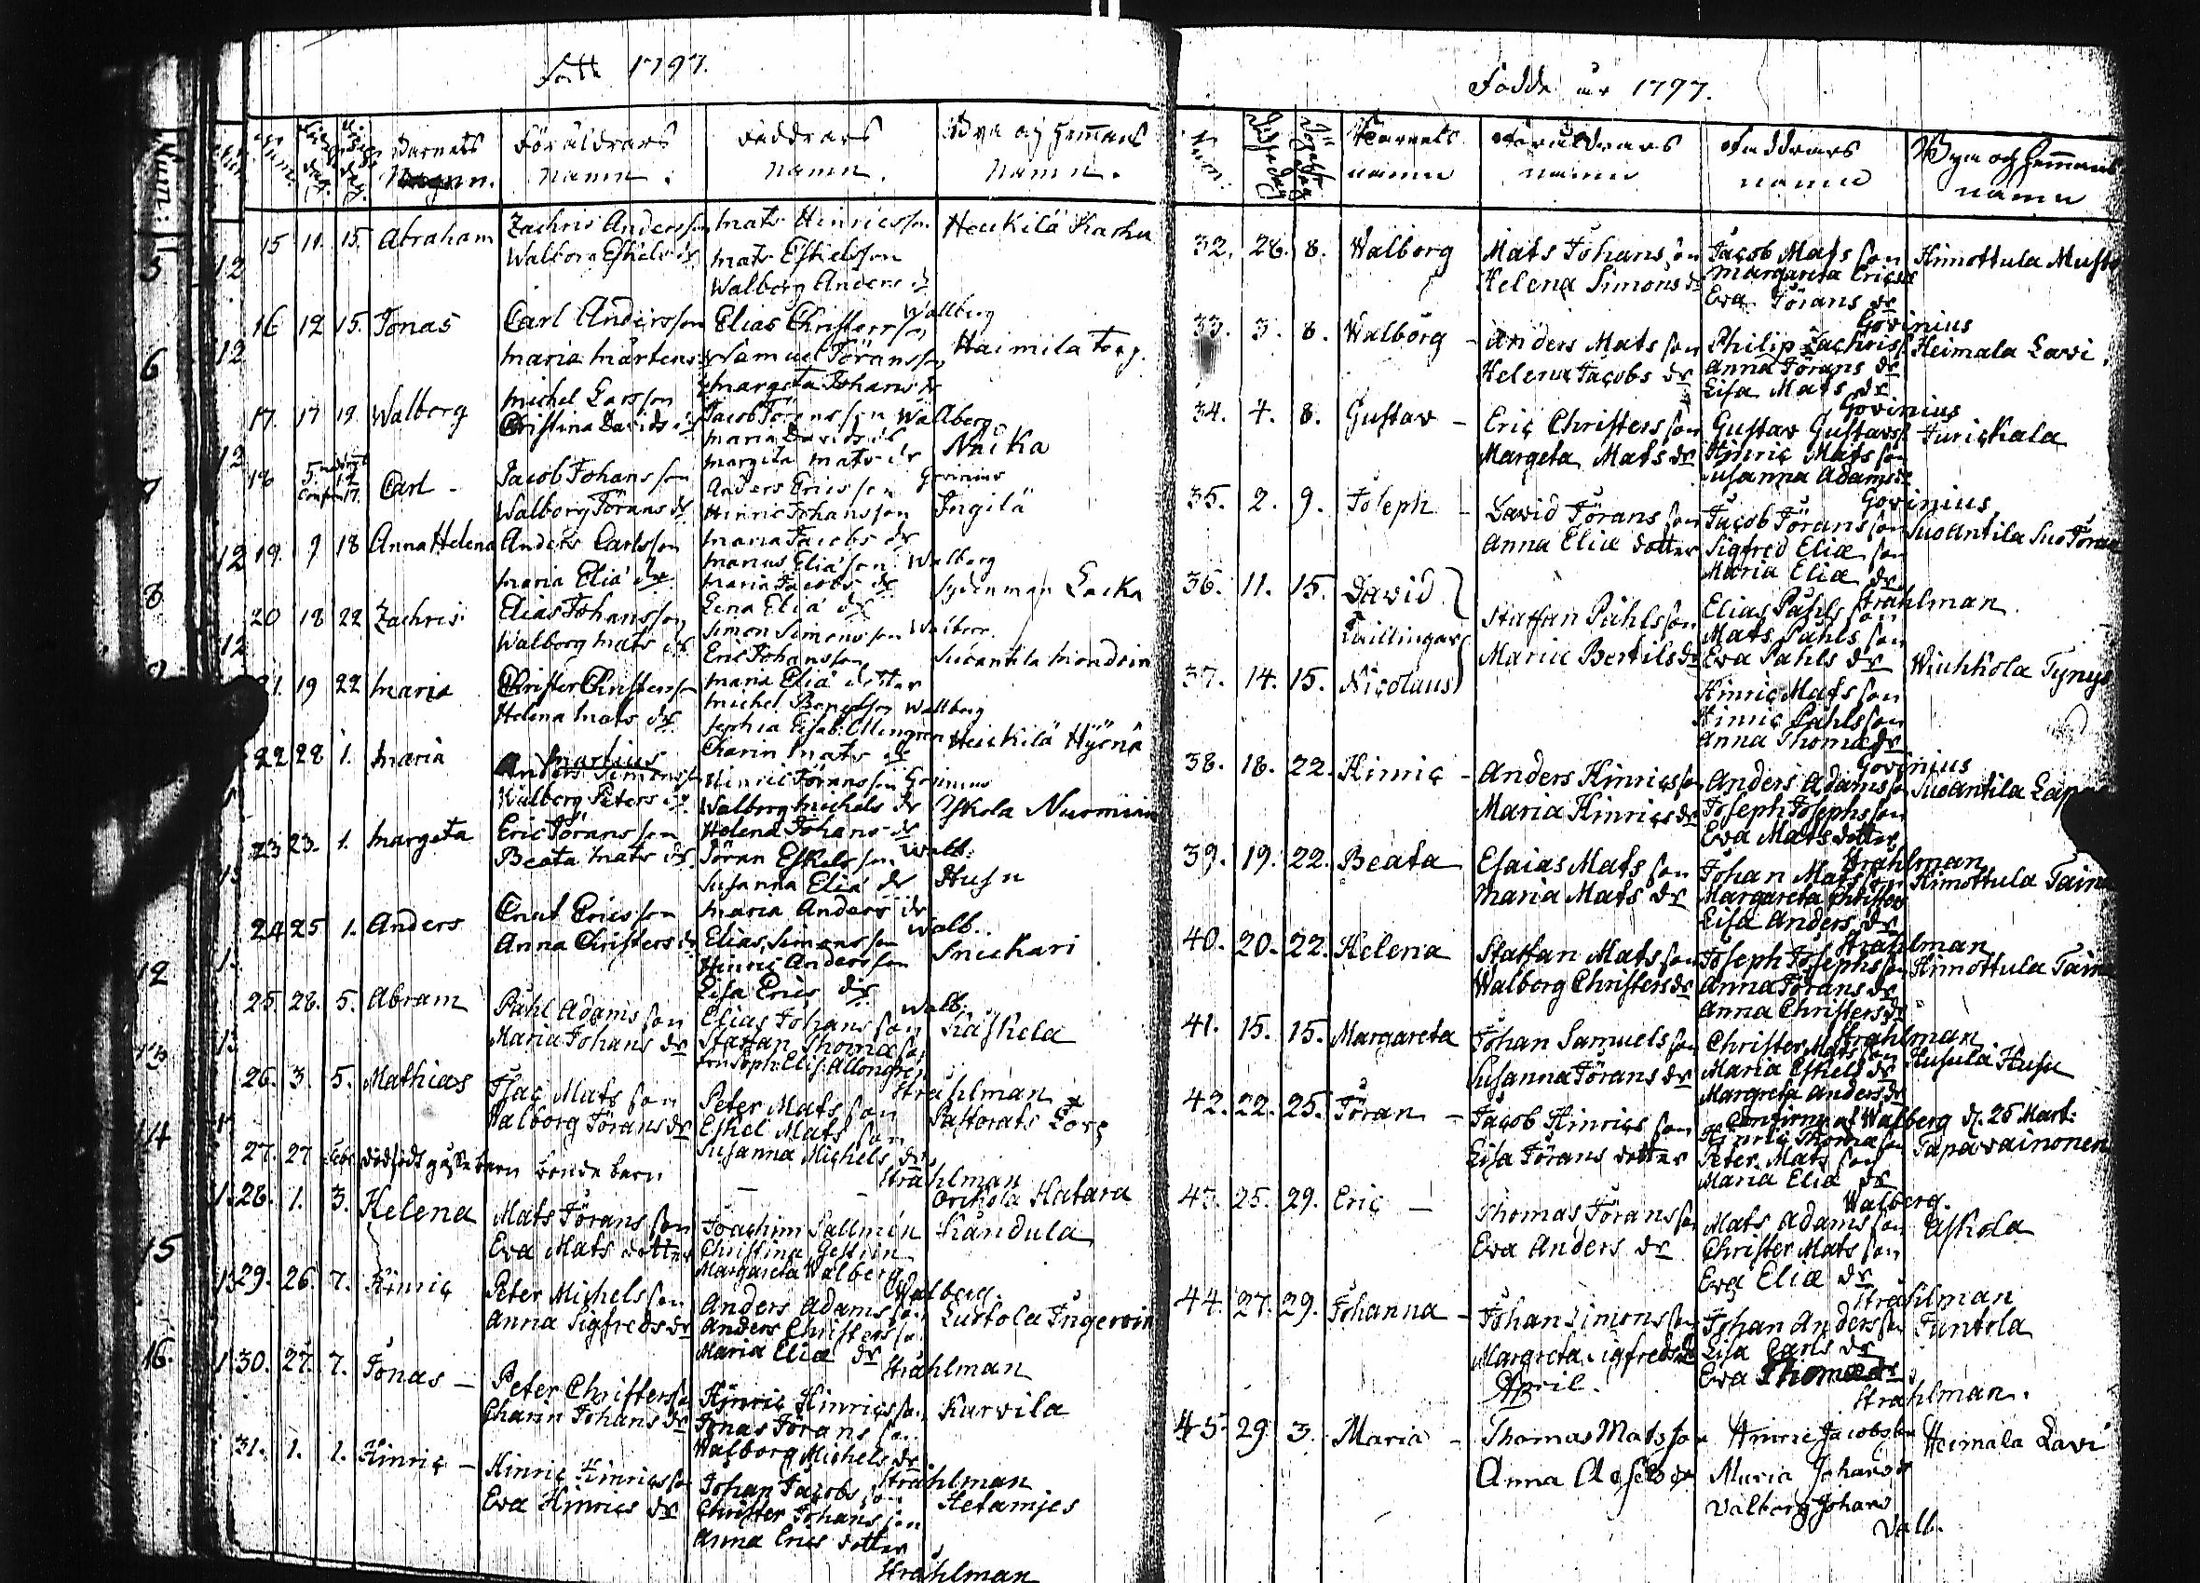 Födde 1797.
Num: Barnets Namn. Föräldrars Namn. Faddrars Namn. Bya och Hemmans Namn.
15 11. 15. Abraham Zachris Andersson Mats Hinricsson Heickilä Karhu
Walborg Eskels dr Mats Eskelsson
Walborg Anders dr
Wallberg
16 12 15. Jonas Carl Andersson Elias Christersson Haimila Torp.
Maria Mårtens dr Samuel Jöransson
Margeta Johans dr
Wallberg
17. 17 19. Walborg Michel Larsson Jacob Jöransson Naika
Christina Davids dr Maria Davids dr
Margeta Mats dr
Govinius
18 5. 17. Carl - Jacob Johansson Anders Ericsson Ingilä
Walborg Jörans dr Hinric Johansson
Maria Jacobs dr
Walberg
19. 9 18 Anna Helena Anders Carlsson Marcus Eliæ son Sydänman Lacka
Maria Eliæ dr Maria Jacobs dr
Lena Eliæ dr
20 18 22 Zachris Elias Johansson Simon Simonsson Suoantila
Walborg Mats dr Eric Johansson
Maria Eliæ dotter
Wallberg
21. 19 22 Maria Christer Christersson Michel Bengtsson Heickilä Hyenä
Helena Mats dr Sophia Elisab: Allengren
Charin Mats dr
Martius
22 28 1. Maria Anders Simonsson Hinric Jöransson Uskola Nurminen
Walborg Peters dr Walborg Michels dr
Helena Johans dr
Govinius
23 23. 1. Margeta Eric Jöransson Jöran Eskelsson Husu
Beata Mats dr Susanna Eliæ dr
Maria Anders dr
Walb.
24 25 1. Anders Cnut Ericsson Elias Simonsson Snickari
Anna Christers dr Hinric Andersson
Lisa Erics dr
Walb.
25. 28. 5. Abram Påhl Adams son Elias Johans son Kaskela
Maria Johans dr Staffan Thomæ son
Frn Soph: Elis: Allengren
Strahlman
26. 3. 5. Mathias Isac Mats son Peter Mats son Pastorats Torp
Walborg Jörans dr Eskel Mats son
Susanna Michels dr
Strahlman
27. 27 Febr. dödfödt gosse barn bonde barn — — Orickola Hatara
28. 1. 3. Helena Mats Jörans son Joachim Sallmén Kandula
Eva Mats dotter Christina Gestrin
Margareta Walberg
Walberg.
29. 26. 7. Hinric Peter Michels son Anders Adams son Lustola Ingervin
Anna Sigfreds dr Anders Christers son
Maria Eliæ dr
Strahlman
30. 27. 7. Jonas — Peter Christersson Hinric Hinricsson Kurvila
Charin Johans dr Jonas Jörans son
Walborg Michels dr
Strahlman
31. 1. 1. Hinric — Hinric Hinricsson Johan Jacobs son Hetamies
Eva Hinrics dr Christer Johans son
Anna Erics dotter
Strahlman
Födde år 1797.
Num: Födelse dag Barnets namn Föräldrars namn Faddrars namn Bya och Hemmans namn
32. 28. 8. Walborg Mats Johansson Jacob Mats son Himottula Musto
Helena Simons dr Margareta Erics dr
Eva Jörans dr
Govinius
33. 3. 8. Walborg - Anders Mats son Philip Zachriss. Heimala Lavi
Helena Jacobs dr Anna Jörans dr
Lisa Mats dr
Govinius
34. 7. 8. Gustav - Eric Christers son Gustav Gustavss. Turickala
Margeta Mats dr Hinric Mats son
Susanna Adams dr
Govinius
35. 2. 9. Joseph - David Jörans son Jacob Jörans son Suoantila
Anna Eliæ dotter Sigfred Eliæ son
Maria Eliæ dr
Strahlman
36. 11. 15. David Staffan Påhls son Elias Påhls son
Tvillingar Maria Bertils dr Mats Påhls son
Eva Påhls dr Wuhkola Tynys
37. 14. 15. Nicolaus Hinric Mats son
Hinric Påhls son
Anna Thomæ dr
Govinius
38. 18. 22. Hinric - Anders Hinricsson Anders Adamsson Suoantila
Maria Hinrics dr Joseph Josephsson
Eva Mats dotter
Strahlman
39. 19. 22. Beata Esaias Mats son Johan Mats son Himottula
Maria Mats dr Margareta Christers
Lisa Anders dr
Strahlman
40. 20. 22. Helena Staffan Mats son Joseph Josephsson Himottula
Walborg Christers dr Anna Jörans dr
Anna Christers dr
Strahlman
41. 15. 15. Margareta Johan Samuels son Christer Mats son Husula Husu
Susanna Jörans dr Maria Eskels dr
Margreta Anders dr
Confirm: af Walberg d. 26 Mart:
42. 22. 25. Jöran - Jacob Hinrics son Hinric Thomæ son Tapavainonen
Lisa Jörans dotter Peter Mats son
Maria Eliæ dr
Walberg.
43. 25. 29. Eric — Thomas Jöransson Mats Adams son Uskola
Eva Anders dr Christer Mats son
Eva Eliæ dr
Strahlman
44. 27. 29. Johanna - Johan Simonsson Johan Andersson Tuntola
Margreta Sigfreds dr Lisa Carls dr
Eva Thomæ dr
Strahlman.
April.
45. 29 3. Maria - Thomas Matsson Hinric Jacobsson Heimala Lavi
Anna Maria Johans dr
Valborg Johans
Valb.